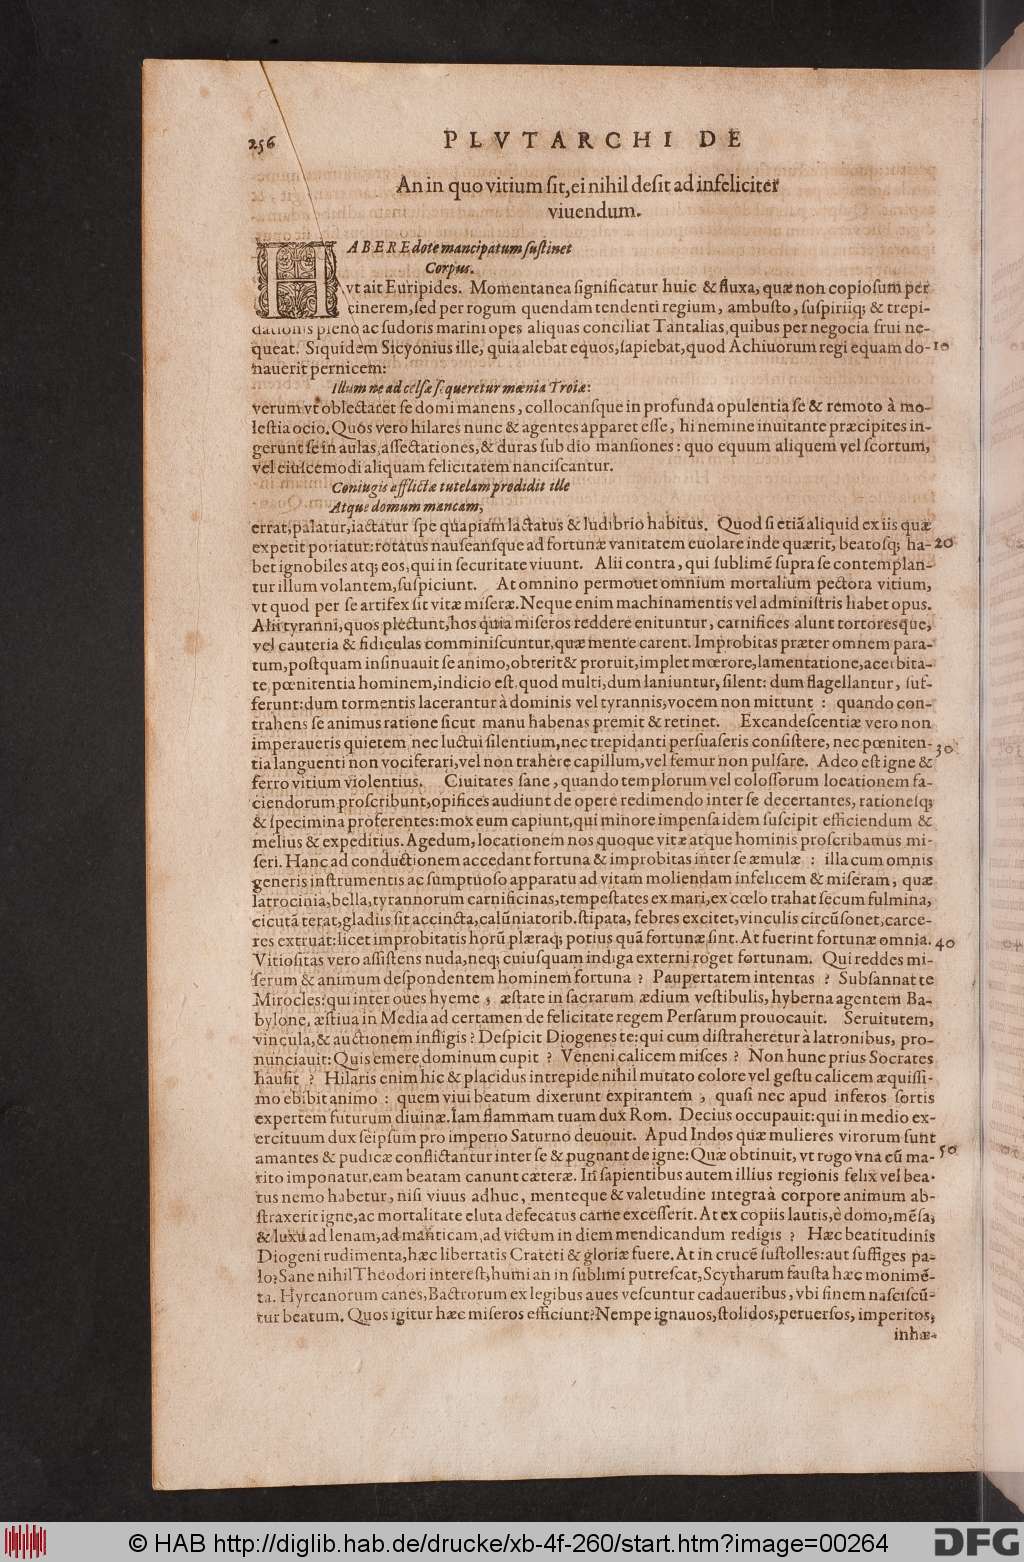 256
PLVTARCHI DE
An in quo vitium sit, ei nihil desit ad infeliciter
viuendum.
HABERE dote mancipatum sustinet
Corpus.
vt ait Euripides. Momentanea significatur huic & fluxa, quæ non copiosum per
cinerem, sed per rogum quendam tendenti regium, ambusto, suspiriiq; & trepi-
dationis pleno ac sudoris marini opes aliquas conciliat Tantalias, quibus per negocia frui ne-
queat. Siquidem Sicyonius ille, quia alebat equos, sapiebat, quod Achiuorum regi equam do- 10
nauerit pernicem:
Illum ne ad celsæ sequeretur mœnia Troiæ:
verum vt oblectaret se domi manens, collocansque in profunda opulentia se & remoto à mo-
lestia ocio. Quos vero hilares nunc & agentes apparet esse, hi nemine inuitante præcipites in-
gerunt se in aulas, assectationes, & duras sub dio mansiones: quo equum aliquem vel scortum,
vel eiuscemodi aliquam felicitatem nanciscantur.
Coniugis afflictæ tutelam prodidit ille
Atque domum mancam,
errat, palatur, iactatur spe quapiam lactatus & ludibrio habitus. Quod si etiã aliquid ex iis quæ
expetit potiatur: rotatus nauseansque ad fortunæ vanitatem euolare inde quærit, beatosq; ha- 20
bet ignobiles atq; eos, qui in securitate viuunt. Alii contra, qui sublimẽ supra se contemplan-
tur illum volantem, suspiciunt. At omnino permouet omnium mortalium pectora vitium,
vt quod per se artifex sit vitæ miseræ. Neque enim machinamentis vel administris habet opus.
Alii tyranni, quos plectunt, hos quia miseros reddere enituntur, carnifices alunt tortoresque,
vel cauteria & fidiculas comminiscuntur, quæ mente carent. Improbitas præter omnem para-
tum, postquam insinuauit se animo, obterit & proruit, implet mœrore, lamentatione, acerbita-
te, pœnitentia hominem, indicio est, quod multi, dum laniuntur, silent: dum flagellantur, suf-
ferunt: dum tormentis lacerantur à dominis vel tyrannis, vocem non mittunt: quando con-
trahens se animus ratione sicut manu habenas premit & retinet. Excandescentiæ vero non
imperaueris quietem, nec luctui silentium, nec trepidanti persuaseris consistere, nec pœniten- 30
tia languenti non vociferari, vel non trahere capillum, vel femur non pulsare. Adeo est igne &
ferro vitium violentius. Ciuitates sane, quando templorum vel colossorum locationem fa-
ciendorum proscribunt, opifices audiunt de opere redimendo inter se decertantes, rationesq;
& specimina proferentes: mox eum capiunt, qui minore impensa idem suscipit efficiendum &
melius & expeditius. Agedum, locationem nos quoque vitæ atque hominis proscribamus mi-
seri. Hanc ad conductionem accedant fortuna & improbitas inter se æmulæ: illa cum omnis
generis instrumentis ac sumptuoso apparatu ad vitam moliendam infelicem & miseram, quæ
latrocinia, bella, tyrannorum carnificinas, tempestates ex mari, ex cœlo trahat secum fulmina,
cicutã terat, gladiis sit accincta, calũniatorib. stipata, febres excitet, vinculis circũsonet, carce-
res extruat: licet improbitatis horũ plæraq; potius quã fortunæ sint. At fuerint fortunæ omnia. 40
Vitiositas vero assistens nuda, neq; cuiusquam indiga externi roget fortunam. Qui reddes mi-
serum & animum despondentem hominem fortuna? Paupertatem intentas? Subsannat te
Mirocles: qui inter oues hyeme, æstate in sacrarum ædium vestibulis, hyberna agentem Ba-
bylone, æstiua in Media ad certamen de felicitate regem Persarum prouocauit. Seruitutem,
vincula, & auctionem infligis? Despicit Diogenes te: qui cum distraheretur à latronibus, pro-
nunciauit: Quis emere dominum cupit? Veneni calicem misces? Non hunc prius Socrates
hausit? Hilaris enim hic & placidus intrepide nihil mutato colore vel gestu calicem æquissi-
mo ebibit animo: quem viui beatum dixerunt expirantem, quasi nec apud inferos sortis
expertem futurum diuinæ. Iam flammam tuam dux Rom. Decius occupauit: qui in medio ex-
ercituum dux seipsum pro imperio Saturno deuouit. Apud Indos quæ mulieres virorum sunt
amantes & pudicæ conflictantur inter se & pugnant de igne: Quæ obtinuit, vt rogo vna cũ ma- 50
rito imponatur, eam beatam canunt cæteræ. In sapientibus autem illius regionis felix vel bea-
tus nemo habetur, nisi viuus adhuc, menteque & valetudine integra à corpore animum ab-
straxerit igne, ac mortalitate eluta defecatus carne excesserit. At ex copiis lautis, è domo, mẽsa,
& luxu ad lenam, ad manticam, ad victum in diem mendicandum redigis? Hæc beatitudinis
Diogeni rudimenta, hæc libertatis Crateti & gloriæ fuere. At in crucẽ sustolles: aut suffiges pa-
lo? Sane nihil Theodori interest, humi an in sublimi putrescat, Scytharum fausta hæc monimẽ-
ta. Hyrcanorum canes, Bactrorum ex legibus aues vescuntur cadaueribus, vbi finem nasciscũ-
tur beatum. Quos igitur hæc miseros efficiunt? Nempe ignauos, stolidos, peruersos, imperitos,
inhæ-
© HAB http://diglib.hab.de/drucke/xb-4f-260/start.htm?image=00264
DFG